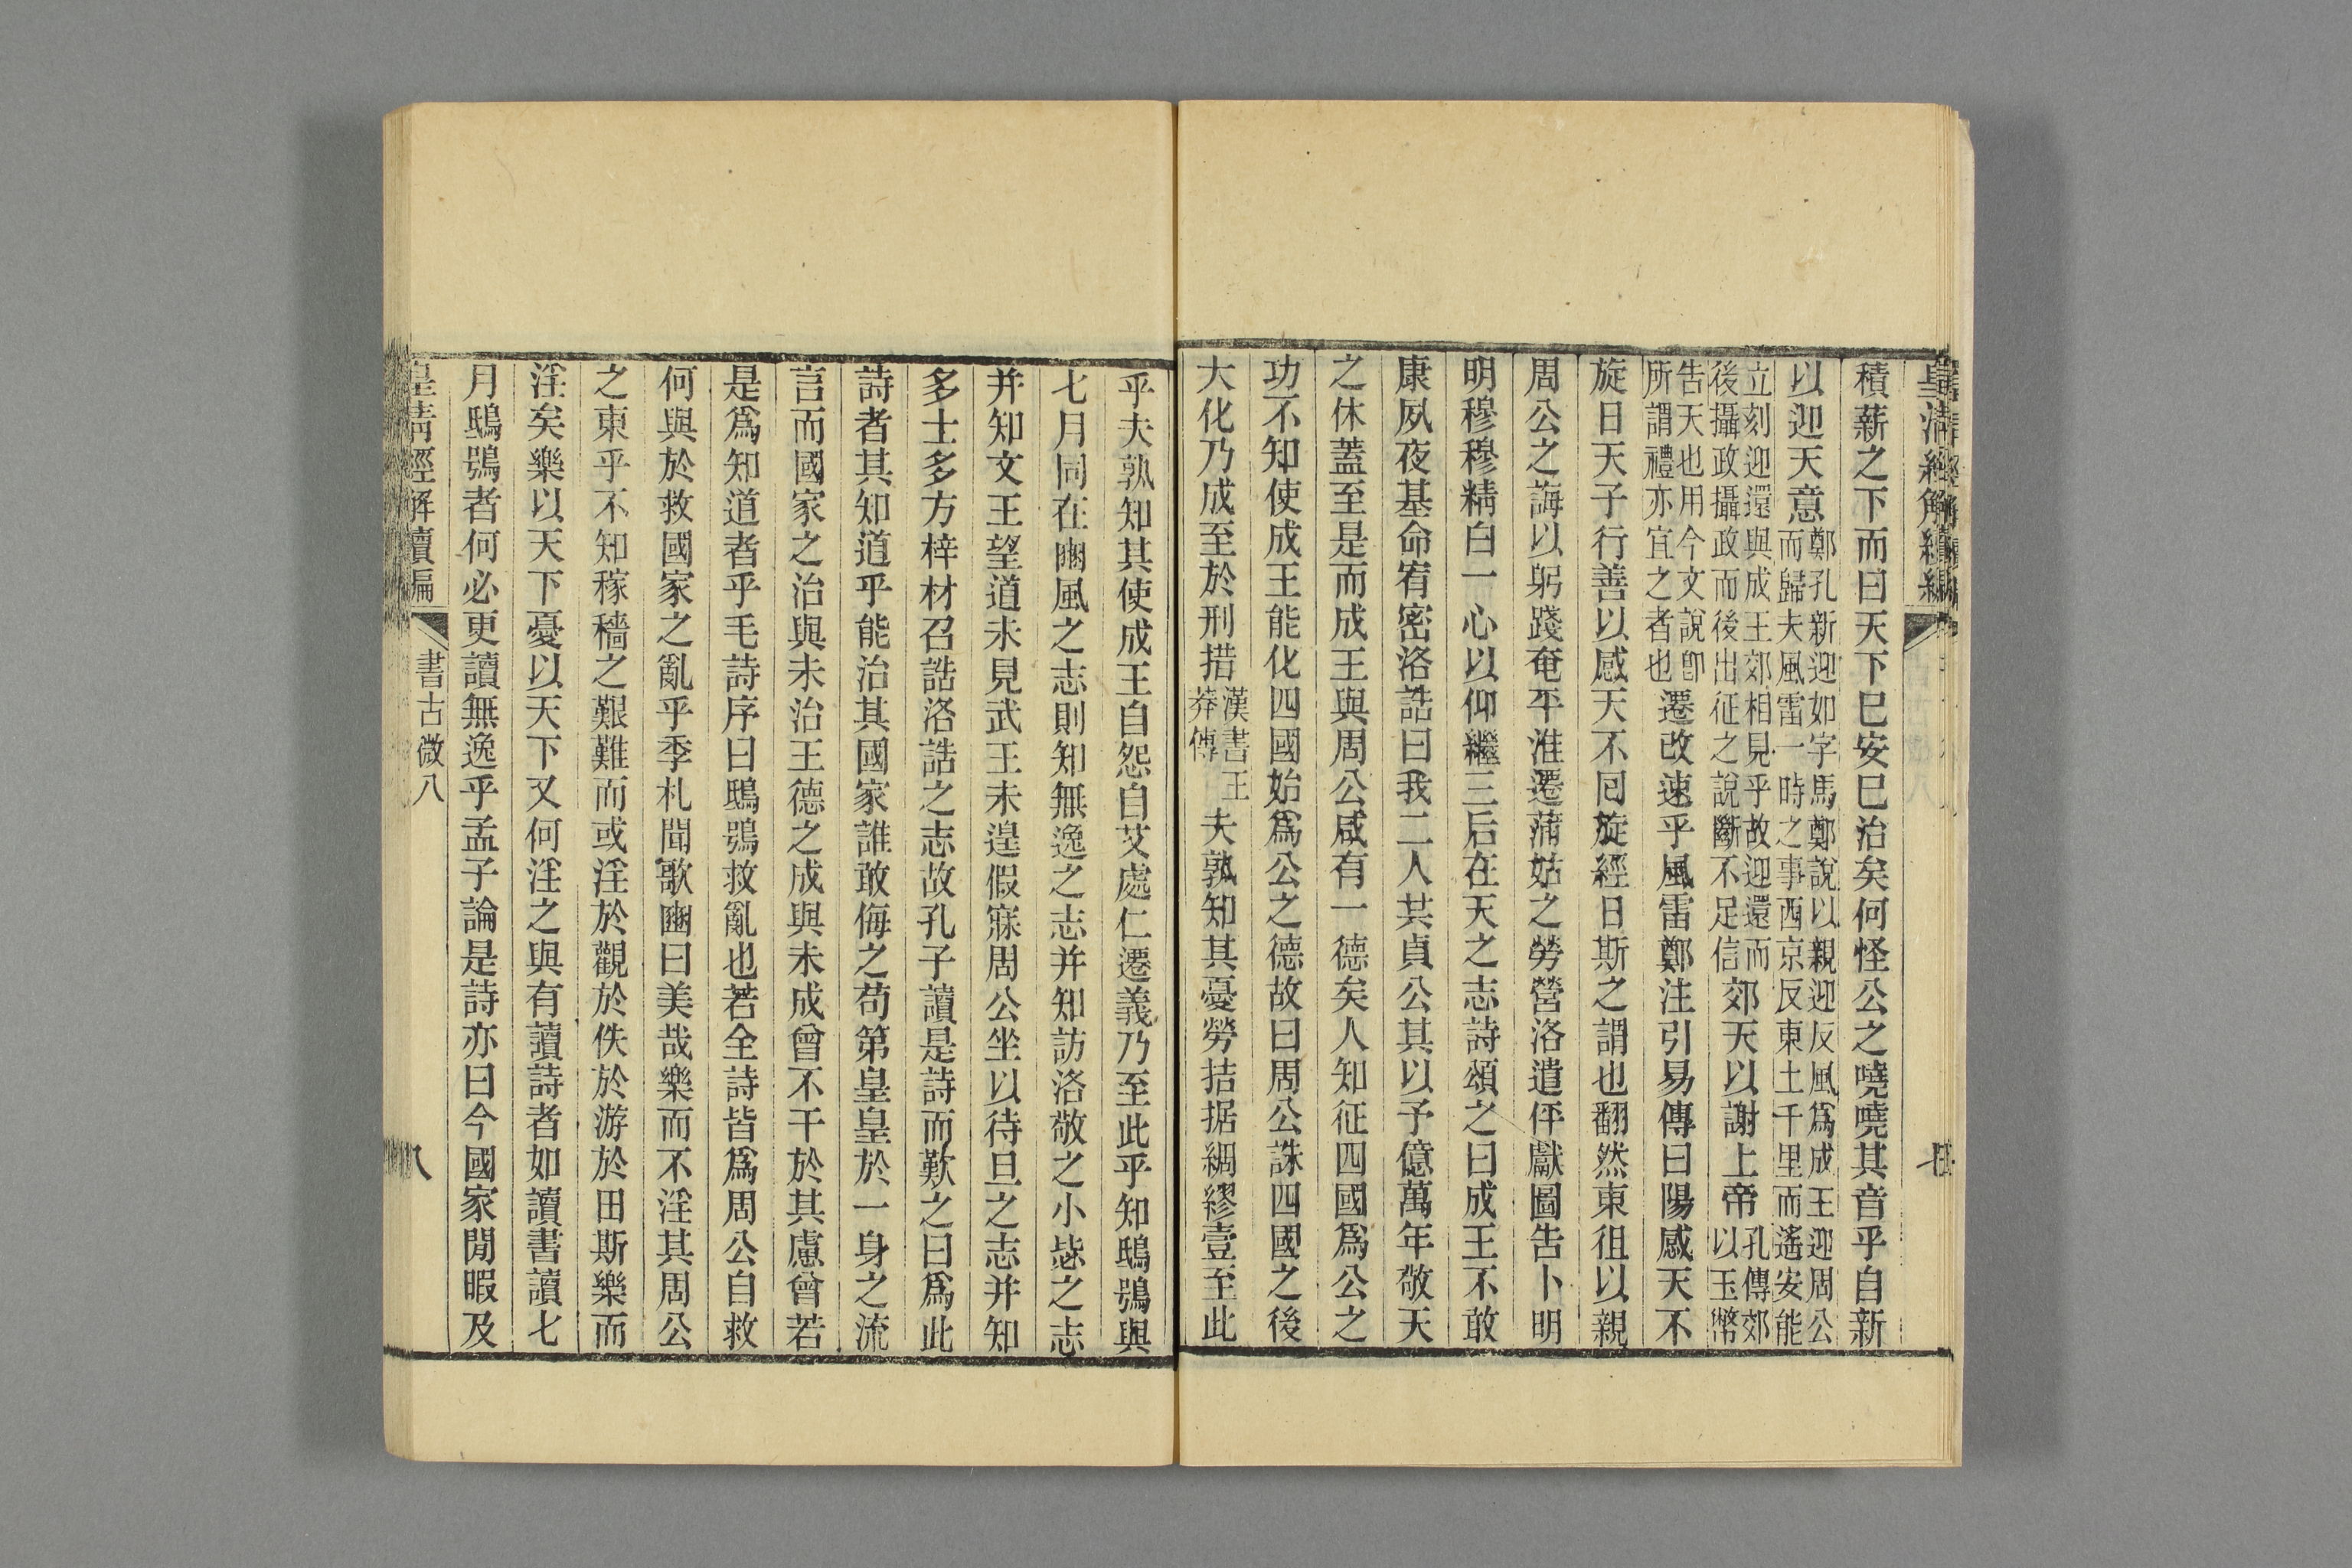 皇清經解續編
積薪之下而曰天下巳安巳治矣何怪公之嘵嘵其音乎自新
以迎天意鄭孔新迎如字馬鄭說以親迎反風爲成王迎周公而歸夫風雷一時之事西京反東土千里而遙安能
立刻迎還與成王郊相見乎故迎還而後攝政攝政而後出征之說斷不足信郊天以謝上帝孔傳郊以玉幣
告天也用今文說卽所謂禮亦宜之者也遷改速乎風雷鄭注引易傳曰陽感天不
旋日天子行善以感天不囘旋經日斯之謂也翻然東徂以親
周公之誨以躬踐奄平淮遷蒲姑之勞營洛遣伻獻圖告卜明
明穆穆精白一心以仰繼三后在天之志詩頌之曰成王不敢
康夙夜基命宥密洛誥曰我二人共貞公其以予億萬年敬天
之休蓋至是而成王與周公咸有一德矣人知征四國爲公之
功不知使成王能化四國始爲公之德故曰周公誅四國之後
大化乃成至於刑措漢書王莽傳夫孰知其憂勞拮据綢繆壹至此
乎夫孰知其使成王自怨自艾處仁遷義乃至此乎知鴟鴞與
七月同在豳風之志則知無逸之志并知訪洛敬之小毖之志
并知文王望道未見武王未遑假寐周公坐以待旦之志并知
多士多方梓材召誥洛誥之志故孔子讀是詩而歎之曰爲此
詩者其知道乎能治其國家誰敢侮之苟第皇皇於一身之流
言而國家之治與未治王德之成與未成曾不干於其慮曾若
是爲知道者乎毛詩序曰鴟鴞救亂也若全詩皆爲周公自救
何與於救國家之亂乎季札聞歌豳曰美哉樂而不淫其周公
之東乎不知稼穡之艱難而或淫於觀於佚於游於田斯樂而
淫矣樂以天下憂以天下又何淫之與有讀詩者如讀書讀七
月鴟鴞者何必更讀無逸乎孟子論是詩亦曰今國家閒暇及
皇清經解續編 書古微八 八